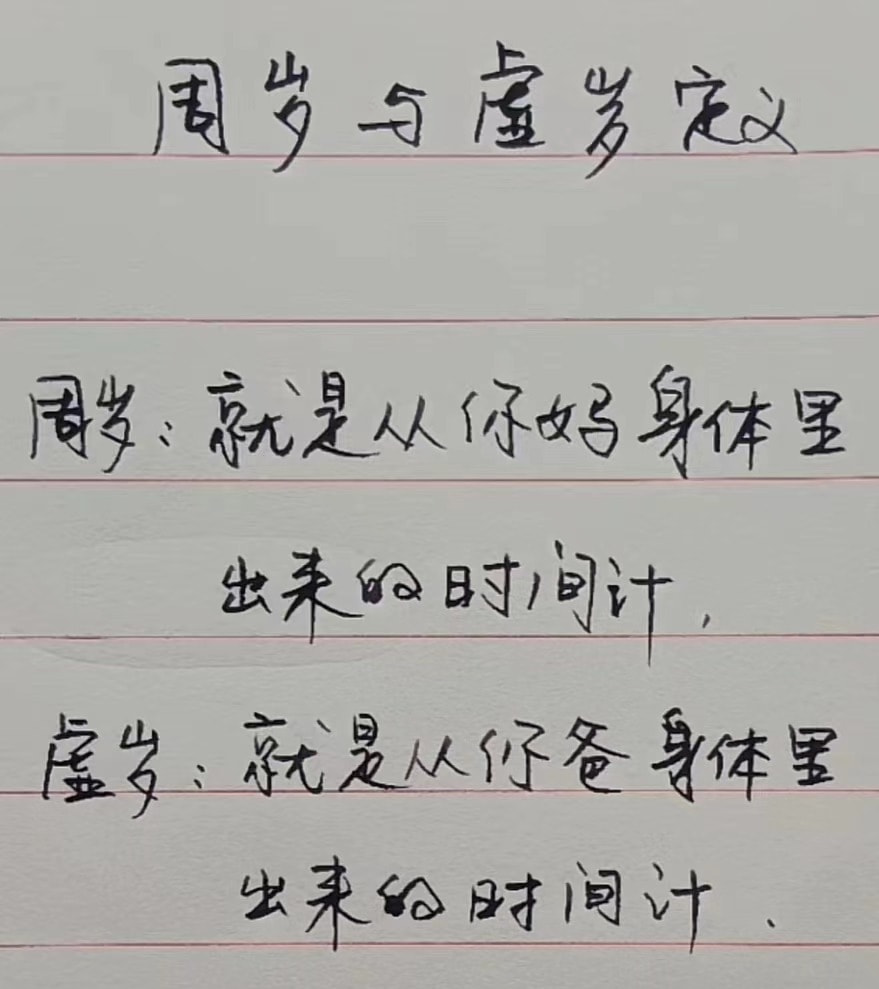 周岁与虚岁定义
周岁：就是从你妈身体里
出来的时间计，
虚岁：就是从你爸身体里
出来的时间计．